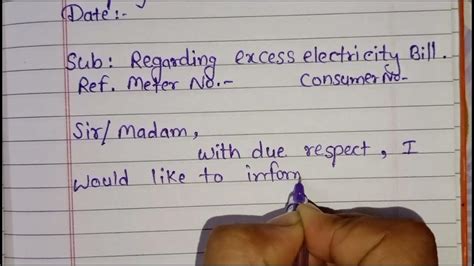 Date:-
Sub: Regarding excess electricity Bill.
Ref. Meter No.- Consumer No-
Sir/Madam,
With due respect, I
would like to inform